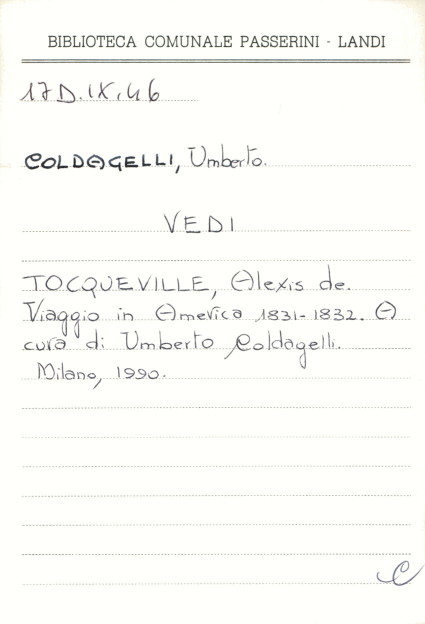 BIBLIOTECA COMUNALE PASSERINI - LANDI
17D.IX.46
COLDAGELLI, Umberto.
VEDI
TOCQUEVILLE, Alexis de.
Viaggio in America 1831-1832. A
cura di Umberto Coldagelli.
Milano, 1990.
C